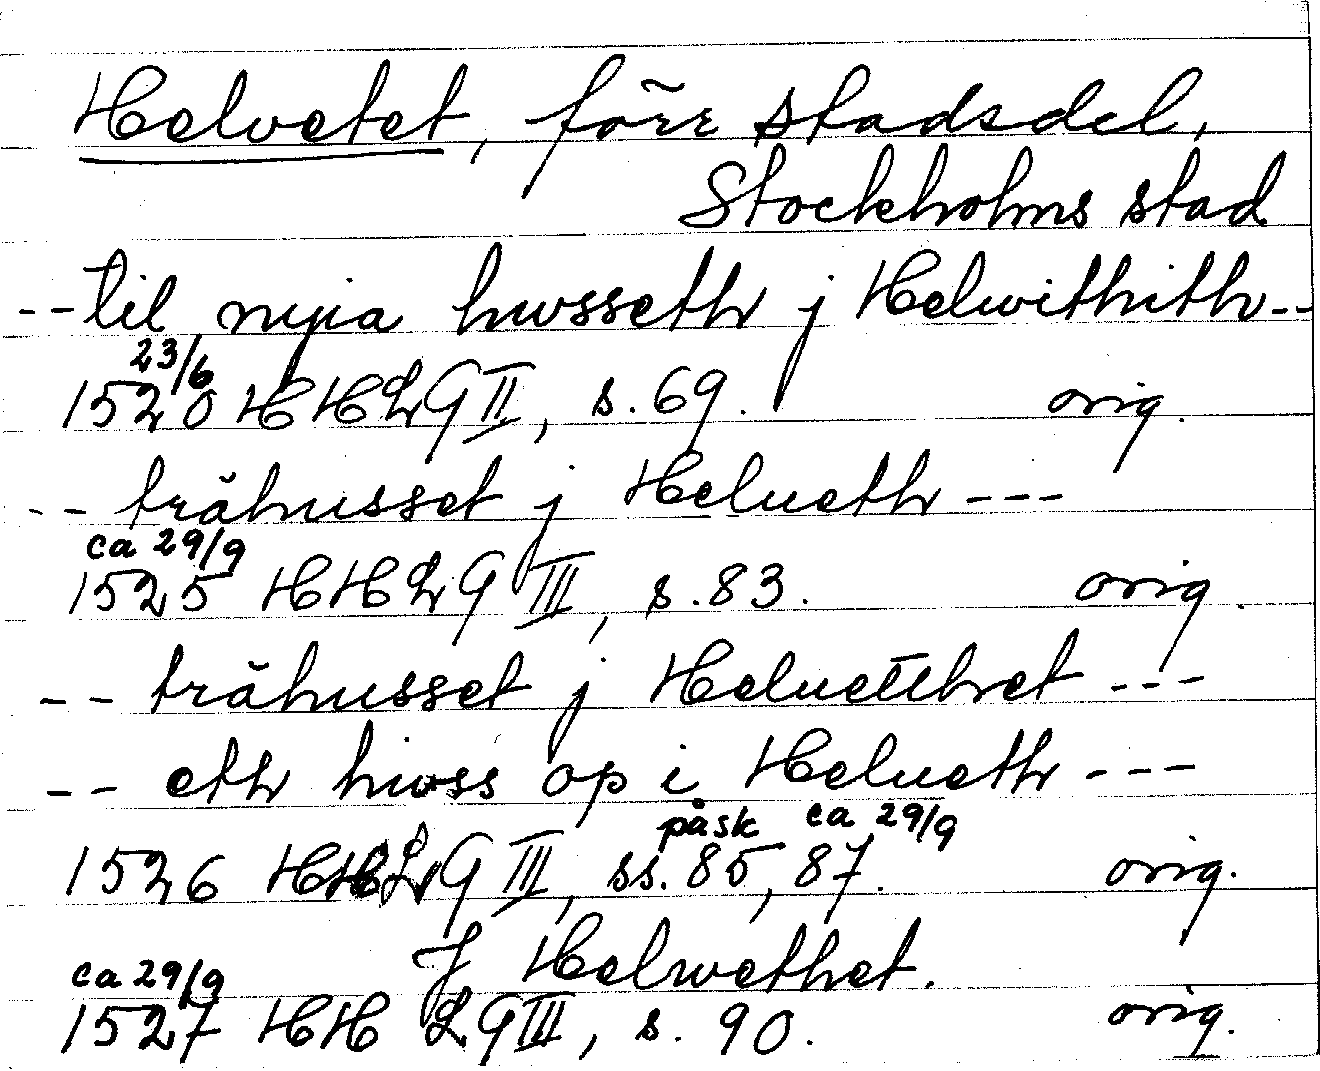 Helvetet, förr stadsdel,
Stockholms stad
-- til nyia hwsseth j Helwithith --
23/6
1520 HHLG II, s. 69. orig.
-- trähusset j Helueth ---
ca 29/9
1525 HHLG III, s. 83. orig.
-- trähusset j Heluetthet ---
-- eth hwss op i Helueth ---
påsk ca 29/9
1526 HHLG III, ss. 85, 87. orig.
J Helwethet.
ca 29/9
1527 HHLG III, s. 90. orig.